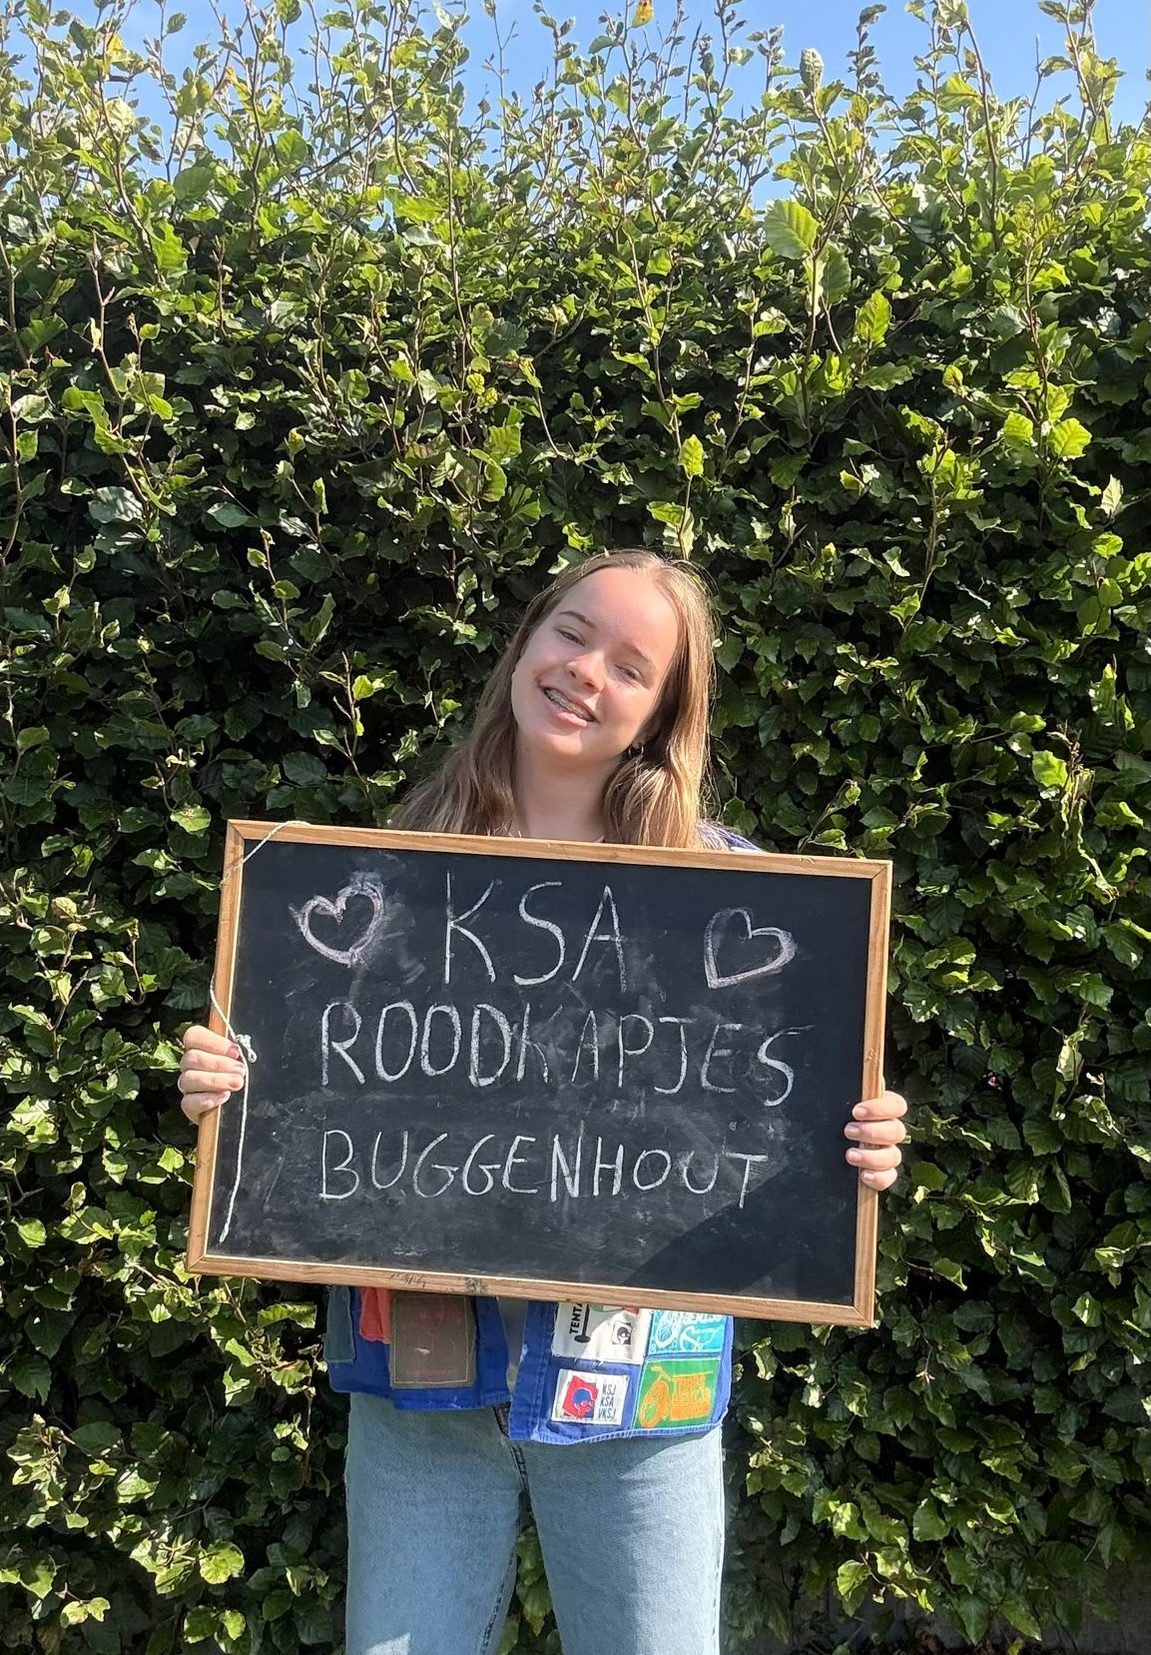 KSA
ROODKAPJES
BUGGENHOUT
KSJ
KSA
VKSJ